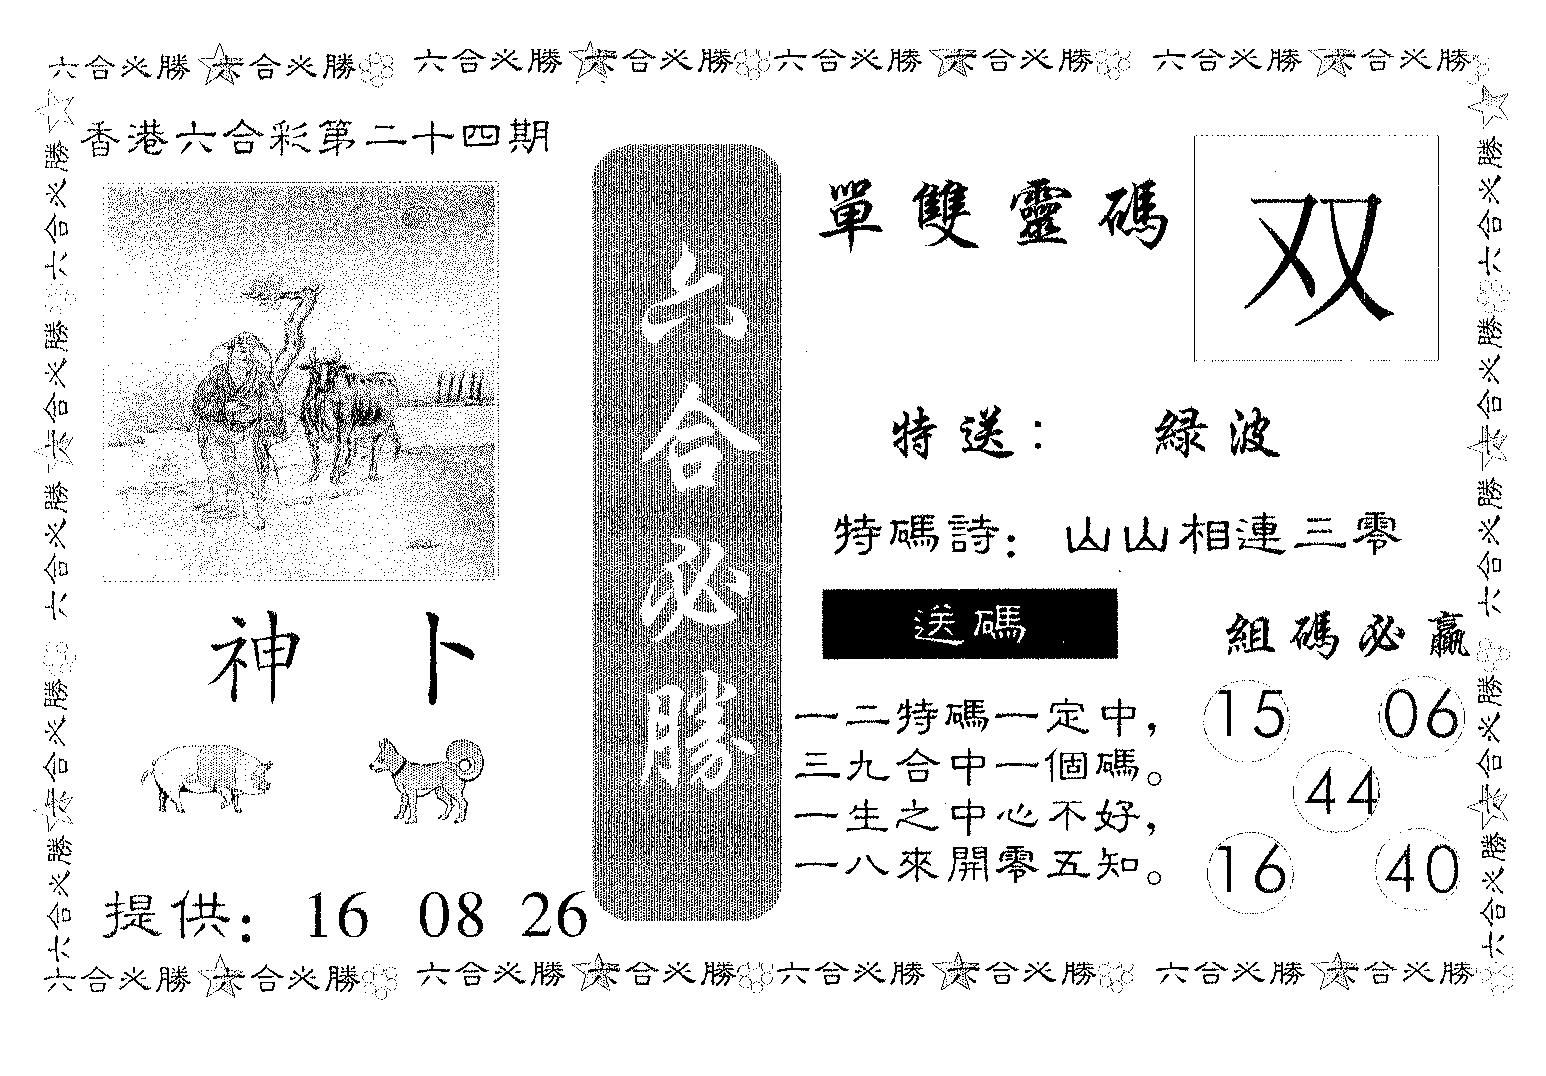 六合必勝 六合必勝 六合必勝 六合必勝 六合必勝 六合必勝 六合必勝 六合必勝
香港六合彩第二十四期
神 卜
提供： 16 08 26
六合必勝
單雙靈碼
双
特送： 緑波
特碼詩： 山山相連三零
送碼
一二特碼一定中，
三九合中一個碼。
一生之中心不好，
一八來開零五知。
組碼必贏
15 06
44
16 40
六合必勝 六合必勝 六合必勝 六合必勝 六合必勝
六合必勝 六合必勝 六合必勝 六合必勝 六合必勝
六合必勝 六合必勝 六合必勝 六合必勝 六合必勝 六合必勝 六合必勝 六合必勝